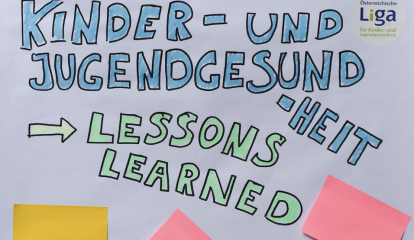 KINDER- UND
JUGENDGESUND
-HEIT
→ LESSONS
LEARNED
Österreichische
Liga
für Kinder- und
Jugendgesundheit